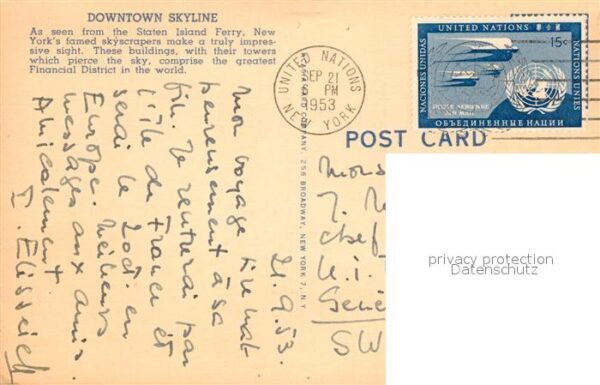 DOWNTOWN SKYLINE
As seen from the Staten Island Ferry, New
York's famed skyscrapers make a truly impres-
sive sight. These buildings, with their towers
which pierce the sky, comprise the greatest
Financial District in the world.
UNITED NATIONS
SEP 21
6 PM
1953
NEW YORK
UNITED NATIONS
15c
NACIONES UNIDAS
NATIONS UNIES
POSTE AERIENNE
AIR MAIL
ОБЪЕДИНЕННЫЕ НАЦИИ
POST CARD
COMPANY, 256 BROADWAY, NEW YORK 7, N.Y.
21.9.53.
Mon voyage tire mal-
heureusement à sa
fin. Je rentrerai par
l'île de France et
serai le 2 oct. en
Europe. Meilleurs
messages aux amis
Amicalement
chef
SW
privacy protection
Datenschutz